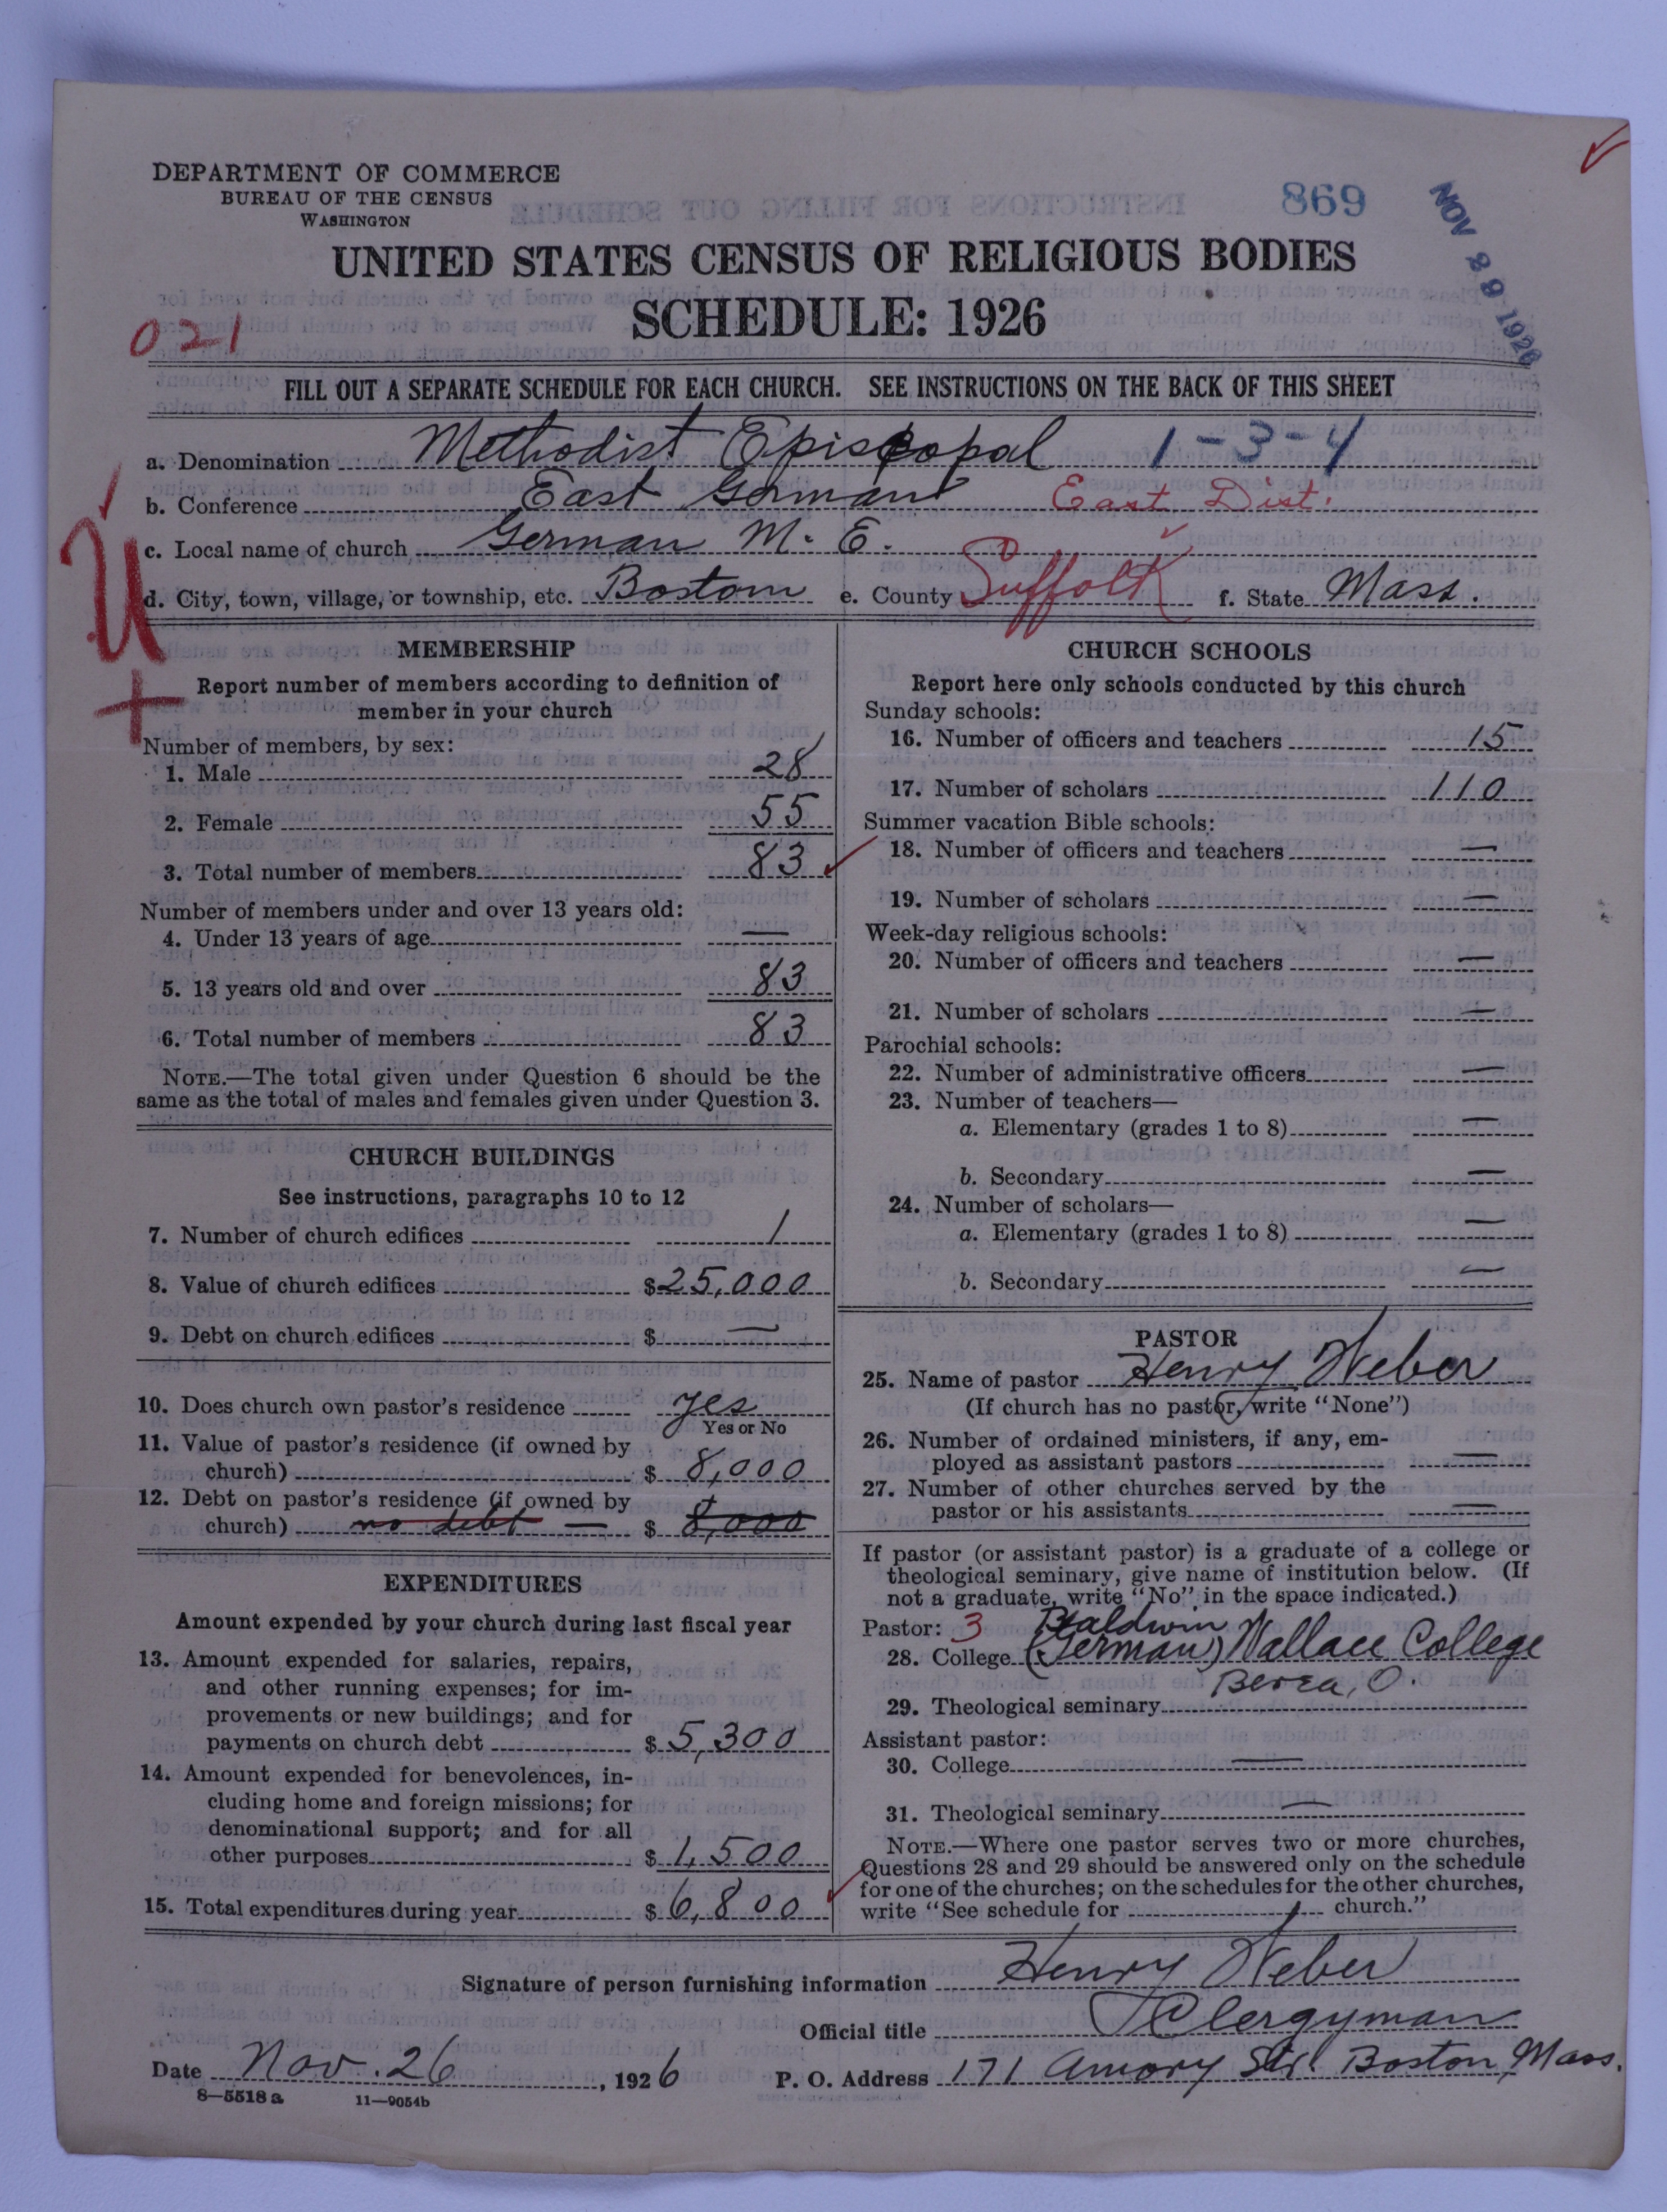 DEPARTMENT OF COMMERCE
BUREAU OF THE CENSUS
WASHINGTON
869
NOV 29 1926
UNITED STATES CENSUS OF RELIGIOUS BODIES
SCHEDULE: 1926
021
FILL OUT A SEPARATE SCHEDULE FOR EACH CHURCH. SEE INSTRUCTIONS ON THE BACK OF THIS SHEET
a. Denomination Methodist Episcopal 1-3-4
b. Conference East German East Dist.
c. Local name of church German M. E.
d. City, town, village, or township, etc. Boston e. County Suffolk f. State Mass.
U
+
MEMBERSHIP
Report number of members according to definition of
member in your church
Number of members, by sex:
1. Male 28
2. Female 55
3. Total number of members 83
Number of members under and over 13 years old:
4. Under 13 years of age —
5. 13 years old and over 83
6. Total number of members 83
NOTE.—The total given under Question 6 should be the
same as the total of males and females given under Question 3.
CHURCH BUILDINGS
See instructions, paragraphs 10 to 12
7. Number of church edifices 1
8. Value of church edifices $25,000
9. Debt on church edifices $ —
10. Does church own pastor's residence yes
Yes or No
11. Value of pastor's residence (if owned by
church) $ 8,000
12. Debt on pastor's residence (if owned by
church) no debt — $ 8,000
EXPENDITURES
Amount expended by your church during last fiscal year
13. Amount expended for salaries, repairs,
and other running expenses; for im-
provements or new buildings; and for
payments on church debt $ 5,300
14. Amount expended for benevolences, in-
cluding home and foreign missions; for
denominational support; and for all
other purposes $ 1,500
15. Total expenditures during year $ 6,800
CHURCH SCHOOLS
Report here only schools conducted by this church
Sunday schools:
16. Number of officers and teachers 15
17. Number of scholars 110
Summer vacation Bible schools:
18. Number of officers and teachers —
19. Number of scholars —
Week-day religious schools:
20. Number of officers and teachers —
21. Number of scholars —
Parochial schools:
22. Number of administrative officers —
23. Number of teachers—
a. Elementary (grades 1 to 8) —
b. Secondary —
24. Number of scholars—
a. Elementary (grades 1 to 8) —
b. Secondary —
PASTOR
25. Name of pastor Henry Weber
(If church has no pastor, write "None")
26. Number of ordained ministers, if any, em-
ployed as assistant pastors —
27. Number of other churches served by the
pastor or his assistants —
If pastor (or assistant pastor) is a graduate of a college or
theological seminary, give name of institution below. (If
not a graduate, write "No" in the space indicated.)
Pastor: 3 Baldwin
28. College (German) Wallace College
Berea, O.
29. Theological seminary
Assistant pastor:
30. College —
31. Theological seminary —
NOTE.—Where one pastor serves two or more churches,
Questions 28 and 29 should be answered only on the schedule
for one of the churches; on the schedules for the other churches,
write "See schedule for church."
Signature of person furnishing information Henry Weber
Official title Clergyman
Date Nov. 26, 1926 P. O. Address 171 Amory Str. Boston, Mass.
8—5518 a 11—9054b